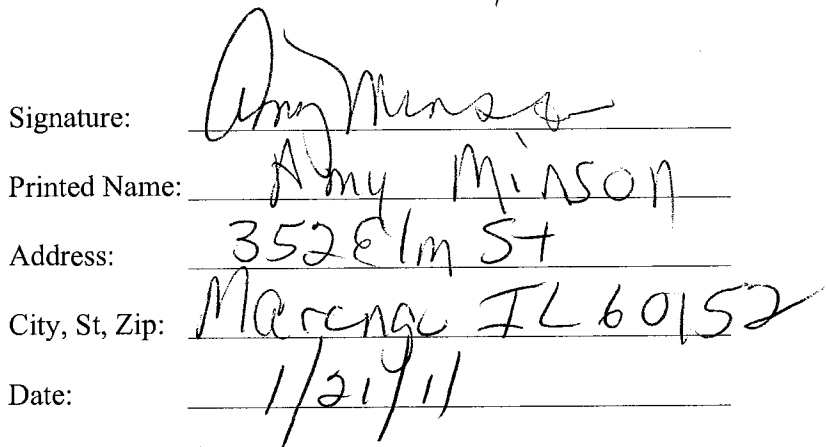 Signature: Amy Minson
Printed Name: Amy Minson
Address: 352 Elm St
City, St, Zip: Marengo IL 60152
Date: 1/21/11